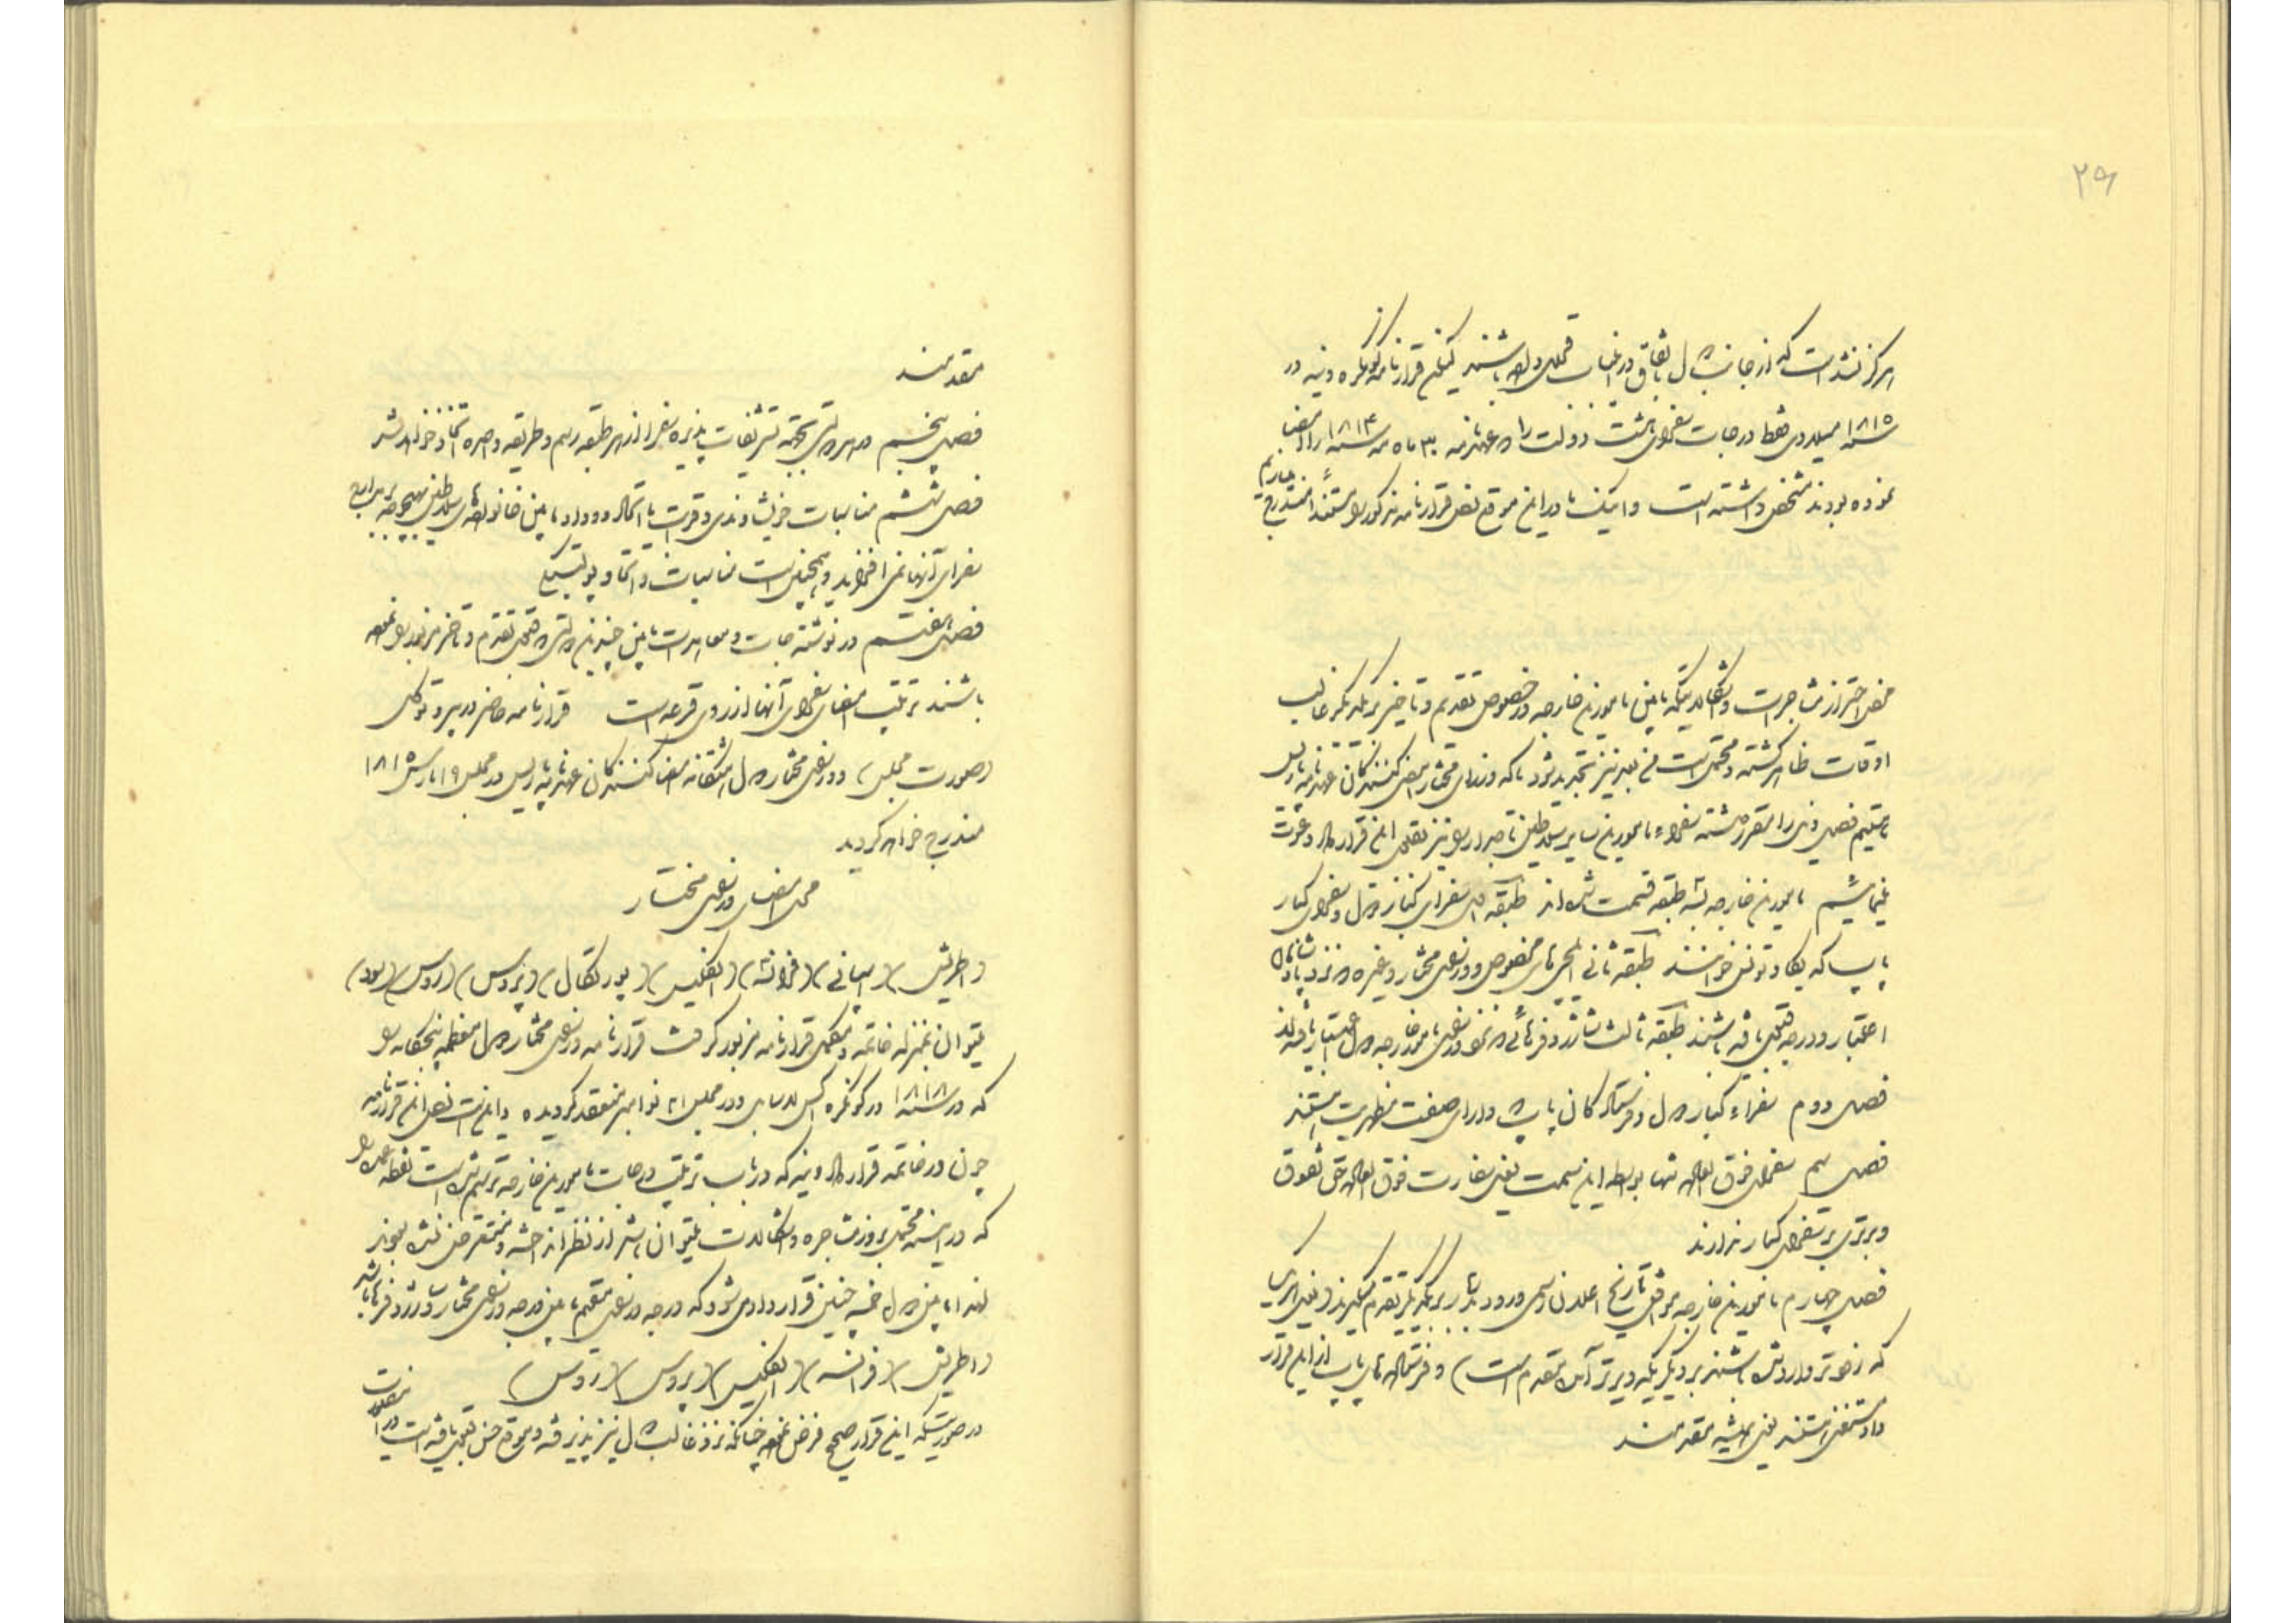 ۲۹
هرگز نشده است که از جانب دول باتفاق در اثبات قبول شده باشند لیکن قرارنامه کنگره وینه در
سنه ۱۸۱۵ میلادی فقط درجات سفرای هشت دولت را که عهدنامه ۳۰ ماه مه سنه ۱۸۱۴ را امضا
نموده بودند مشخص داشته است و اینک ما در این موقع نص قرارنامه مذکور را مستنداً مندرج میداریم
محض احتراز از مشاجرات و اشکالاتیکه مابین مامورین خارجه در خصوص تقدیم و تاخیر بر یکدیگر غالب
اوقات ظاهر گشته و محتمل است من بعد نیز تجدید شود ما که وزرای مختار امضا کنندگان عهدنامه پاریس
هستیم فصول ذیل را مقرر داشته سفراء مامورین سایر سلاطین تاجدار را نیز بقبول این قرارداد دعوت
مینمائیم مامورین خارجه بسه طبقه قسمت شده‌اند طبقه اول سفرای کبار دول و سفرای کبار
پاپ که لگا و نونس خوانند طبقه ثانی ایلچی های مخصوص و وزرای مختار و غیره که نزد پادشاهان
اعتبار و درجه قبول یافته باشند طبقه ثالث شارژدفرهائی که نزد وزرای امور خارجه دول اعتبار یافته‌اند
فصل دوم سفراء کبار دول و فرستادگان پاپ دارای صفت مظهریت هستند
فصل سیم سفرای فوق العاده تنها بواسطه این سمت یعنی سفارت فوق العاده حق تفوق
و برتری بر سفرای کبار ندارند
فصل چهارم مامورین خارجه موافق تاریخ اعلان رسمی ورود بدربار بر یکدیگر تقدم میگیرند (یعنی امرای
که زودتر وارد شده باشند بر دیگریکه دیرتر آمده مقدم است) و فرستاده های پاپ از این قرار
داد مستثنی هستند یعنی همیشه مقدمند
مقدمند
فصل پنجم در هر دولتی بجهة تشریفات پذیره سفرا از هر طبقه رسم و طریقه واحده اتخاذ خواهد شد
فصل ششم مناسبات خویشاوندی و قرابت یا اتحاد و وداد مابین خانواده های سلاطین بهیچوجه بر مراتب
سفرای آنها نمی افزاید و همچنین است مناسبات و اتحاد پولتیکی
فصل هفتم در نوشته جات و معاهدات مابین چندین دولتی که قبول تقدم و تاخر مزبور را نموده
باشند ترتیب امضای سفرای آنها از روی قرعه است قرارنامه حاضر در پروتوکل
(صورت مجلس) وزرای مختار دول هشتگانه امضا کنندگان عهدنامه پاریس در مجلس ۱۹ مارس ۱۸۱۵
مندرج خواهد گردید
محل امضای وزرای مختار
(اطریش) (اسپانی) (فرانسه) (انگلیس) (پورتکال) (پروس) (روس) (سود)
میتوان بمنزله خاتمه و مکمل قرارنامه مزبور گرفت قرارنامه وزرای مختار دول معظمه پنجگانه را
که در سنه ۱۸۱۸ در کونگره اکس لاشاپل و در مجلس ۲۱ نوامبر منعقد گردیده و این است نص این قرارنامه
چون در خاتمه قرارداد وینه که در باب ترتیب درجات مامورین خارجه ترسیم شده است نقطه عمده را
که در آینده محتمل بروز مشاجره و اشکالات میتوان باشد از نظر انداخته و متعرض نشده بودند
لهذا مابین دول خمسه چنین قرارداد می شود که درجه وزرای مقیم مابین درجه وزرای مختار و شارژدفرها باشد
(اطریش) (فرانسه) (انگلیس) (پروس) (روس)
در صورتیکه این قرار صحیح فرض نموده چنانکه نزد غالب دول نیز پذیرفته و موقع حسن قبول یافته است